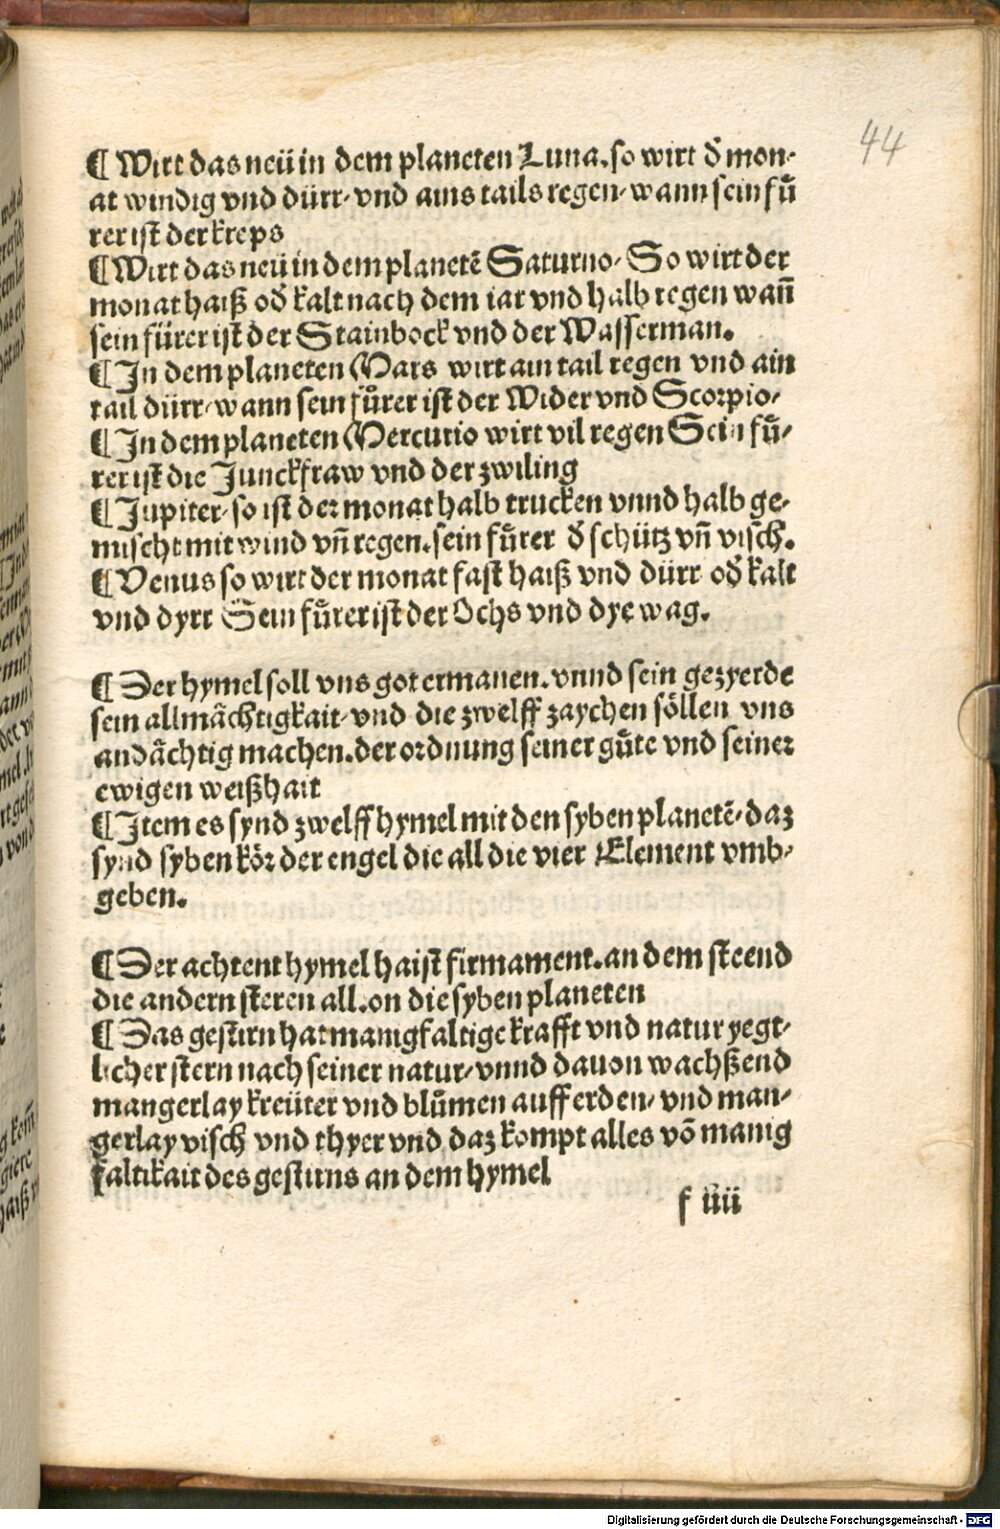 44
¶ Wirt das neü in dem planeten Luna. so wirt d̄ mon⸗
at windig vnd dürr⸗ vnd ains tails regen⸗ wann sein fuͤ
rer ist der kreps
¶ Wirt das neü in dem planetē Saturno⸗ So wirt der
monat haiß od̄ kalt nach dem iar vnd halb regen wan̄
sein fürer ist der Stainbock vnd der Wasserman.
¶ In dem planeten Mars wirt ain tail regen vnd ain
tail dürr⸗ wann sein fuͤrer ist der Wider vnd Scorpio⸗
¶ In dem planeten Mercurio wirt vil regen Sein fuͤ⸗
rer ist die Junckfraw vnd der zwiling
¶ Jupiter⸗ so ist der monat halb trucken vnnd halb ge⸗
mischt mit wind vn̄ regen. sein fuͤrer d̄ schütz vn̄ visch.
¶ Venus so wirt der monat fast haiß vnd dürr od̄ kalt
vnd dyrr Sein fuͤrer ist der Ochs vnd dye wag.
¶ Der hymel soll vns got ermanen. vnnd sein gezyerde
sein allmaͤchtigkait⸗ vnd die zwelff zaychen soͤllen vns
andaͤchtig machen. der ordnung seiner guͤte vnd seiner
ewigen weißhait
¶ Item es synd zwelff hymel mit den syben planetē⸗ daz
synd syben koͤr der engel die all die vier Element vmb⸗
geben.
¶ Der achtent hymel haist firmament. an dem steend
die andern steren all. on die syben planeten
¶ Das gestirn hat manigfaltige krafft vnd natur yegt⸗
licher stern nach seiner natur⸗ vnnd dauon wachßend
mangerlay kreüter vnd bluͤmen auff erden⸗ vnd man⸗
gerlay visch vnd thyer vnd daz kompt alles vō manig
faltikait des gestirns an dem hymel
f iiii
Digitalisierung gefördert durch die Deutsche Forschungsgemeinschaft - DFG